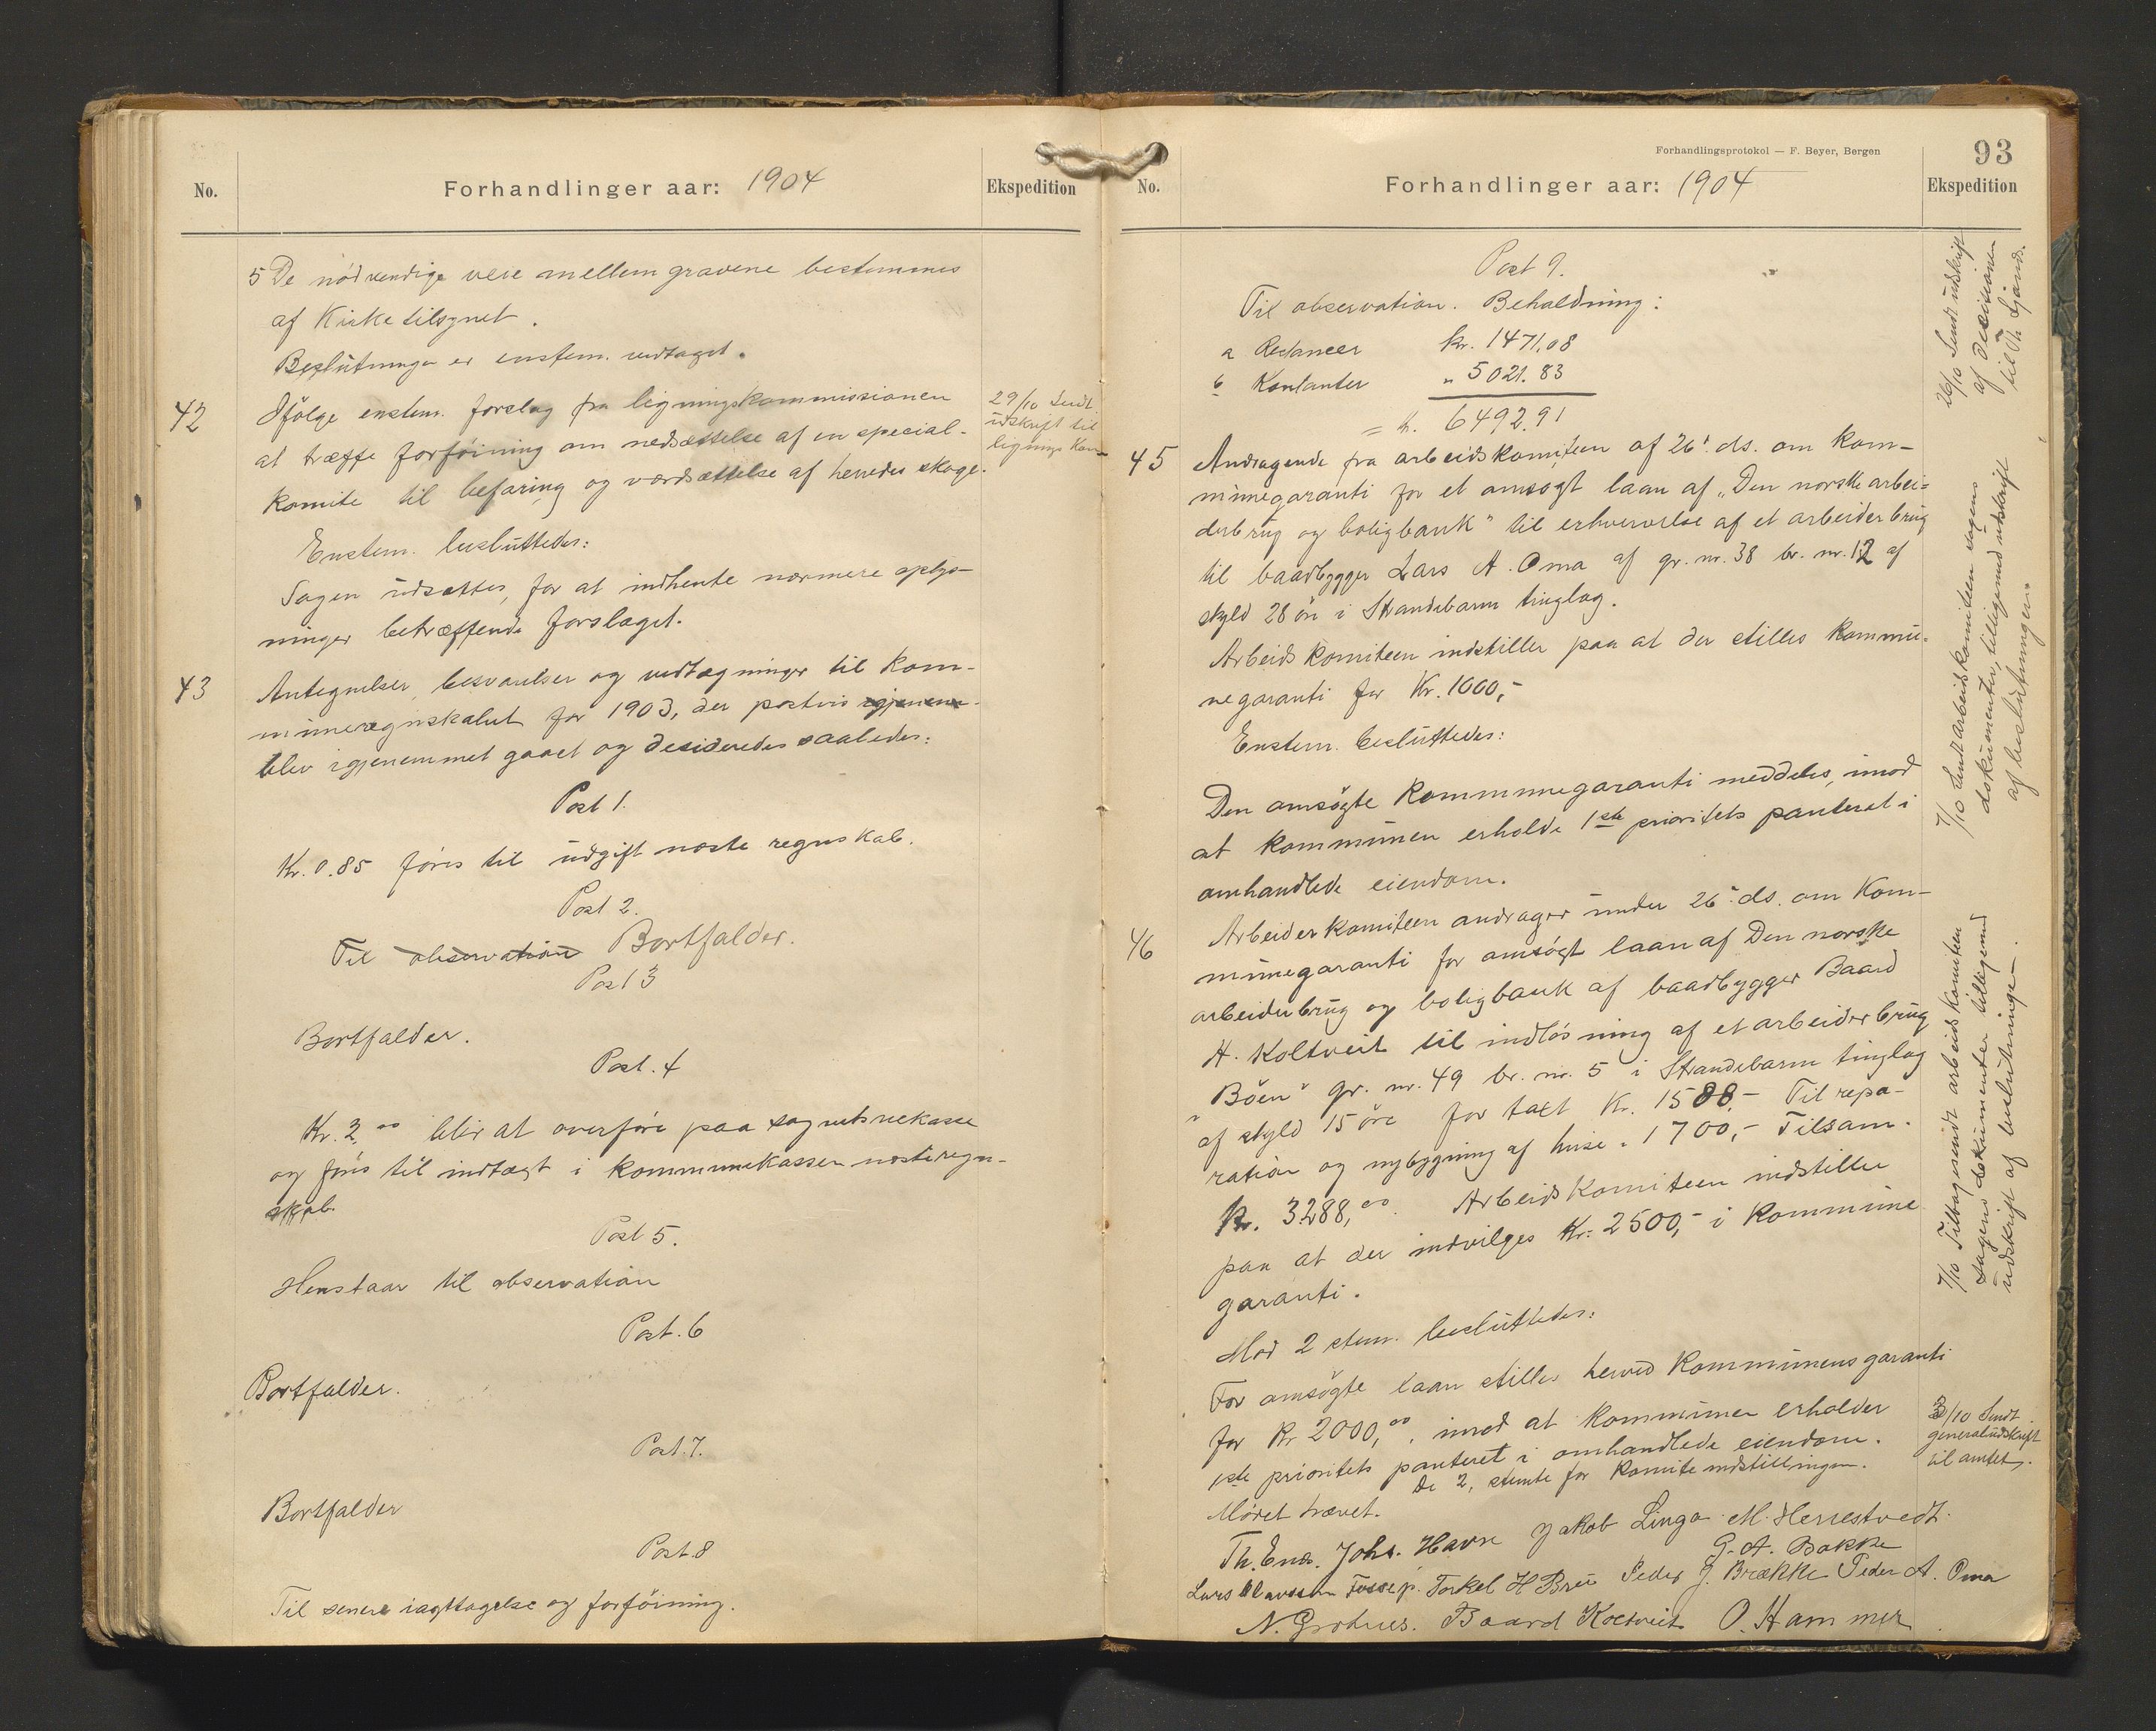 No.
Forhandlinger aar: 1904
Ekspedition
5 De nödvendige veie mellem gravene bestemmes
af Kirketilsynet.
Beslutninga er enstem. vedtaget.
42
Ifölge enstem. forslag fra ligningskommissionen
at træffe forföining om nedsættelse af en special-
komite til befaring og værdsættelse af herredes skoge.
29/10 Sendt
udskrift til
lignings kom-
Enstem. besluttedes:
Sagen udsættes, for at indhente nærmere oplys-
ninger betræffende forslaget.
43
Antegnelser, besvarelser og vedtegninger til kom-
muneregnskabet for 1903, der postvis igjenem-
blev igjenemmet gaaet og desideredes saaledes:
Post 1.
Kr. 0.85 föres til udgift næste regnskab.
Post 2.
Til observation Bortfalder.
Post 3
Bortfalder.
Post. 4
Kr. 2,00 blir at overföre paa sognets
og föris til indtægt i kommunekassen næste regn-
skab.
Post 5.
Henstaar til observation
Post. 6
Bortfalder.
Post. 7.
Bortfalder
Post. 8
Til senere iagttagelse og forföining.
Forhandlingsprotokol — F. Beyer, Bergen
93
No.
Forhandlinger aar: 1904
Ekspedition
Post 9.
Til observation. Behaldning:
a Restancer kr. 1471,08
b Kontanter " 5021.83
= kr. 6492.91
26/10 Sendt udskrift
af decisionen
til Th.
45
Andragende fra arbeidskomiteen af 26' ds. om kom-
munegaranti for et ansøgt laan af „Den norske arbei-
derbrug og boligbank" til erhvervelse af et arbeiderbrug
til baadbygger Lars A. Oma af gr. nr. 38 br. nr. 12 af
skyld 28 öre i Strandebarm tinglag.
Arbeidskomiteen indstiller paa at der stilles kommu-
negaranti for Kr. 1000,-
Enstem. besluttedes:
Den omsögte kommunegaranti meddeles, imod
at kommunen erholde 1ste prioritets panteret i
omhandlede eiendom.
7/10 Sendt arbeidskomiteen sagens
dokumenter, tilligemed udskrift
af beslutningen.
46
Arbeiderkomiteen andrager under 26' ds. om Kom-
munegaranti for omsögt laan af Den norske
arbeiderbrug og boligbank af baadbygger Baard
H. Koltveit til indlösning af et arbeiderbrug
„Böen" gr. nr. 49 br. nr. 5 i Strandebarm tinglag
af skyld 15 öre for taxt Kr. 1588,- Til repa-
ration og nybygning af huse „ 1700,- Tilsam.
Kr. 3288,00. Arbeidskomiteen indstiller
paa at der indvilges Kr. 2500,- i kommune
garanti.
Mod 2 stem. besluttedes:
For omsögte laan stilles herved Kommunens garanti
for Kr 2000,00, imod at kommunen erholder
1ste prioritets panteret i omhandlede eiendom.
De 2, stemte for Komiteindstillingen.
7/10 Tilbagesendt arbeidskomiteen
sagens dokumenter tilligemed
udskrift af beslutningen.
3/10 Sendt
generaludskrift
til amtet.
Mödet hævet.
Th. Johs. Havn Jakob Linga M. Herrestvedt.
G. A. Bakke
Lars Olavsson Fosse p. Torkel H Brei Peder J. Brække Peder A. Oma
N. Baard Koltveit O. Hammer